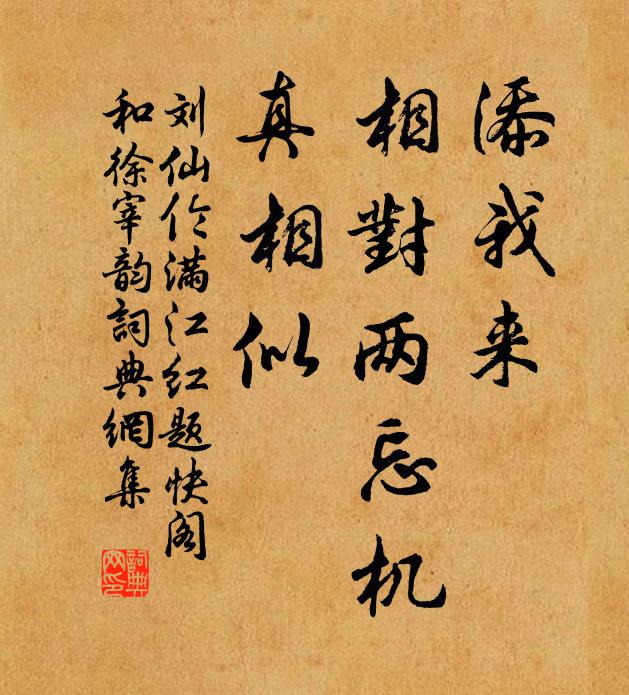 添我来
相對两忘机
真相似
刘仙伦满江红题快阁
和徐宰韵詞典網集
詞典
网印